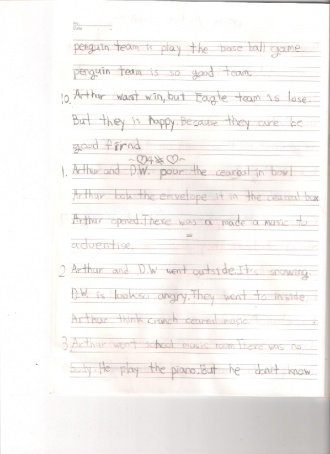 penguin team is play the base ball game
penguin team is so good team.
10. Arthur want win, but Eagle team is lose.
But they is happy. Because they are be
good firnd
~♡4※♡~
1. Arthur and D.W. pour the ceareal in bowl
Arthur look the envelope it in the ceareal box
Arthur opened. There was a made a music to
adventise.
2 Arthur and D.W went outside. It's snowing.
D.W. is looks so angry. They went to inside
Arthur think crunch cereal noise.
3. Arthur went school music room. There was no
body. He play the piano. But he don't know